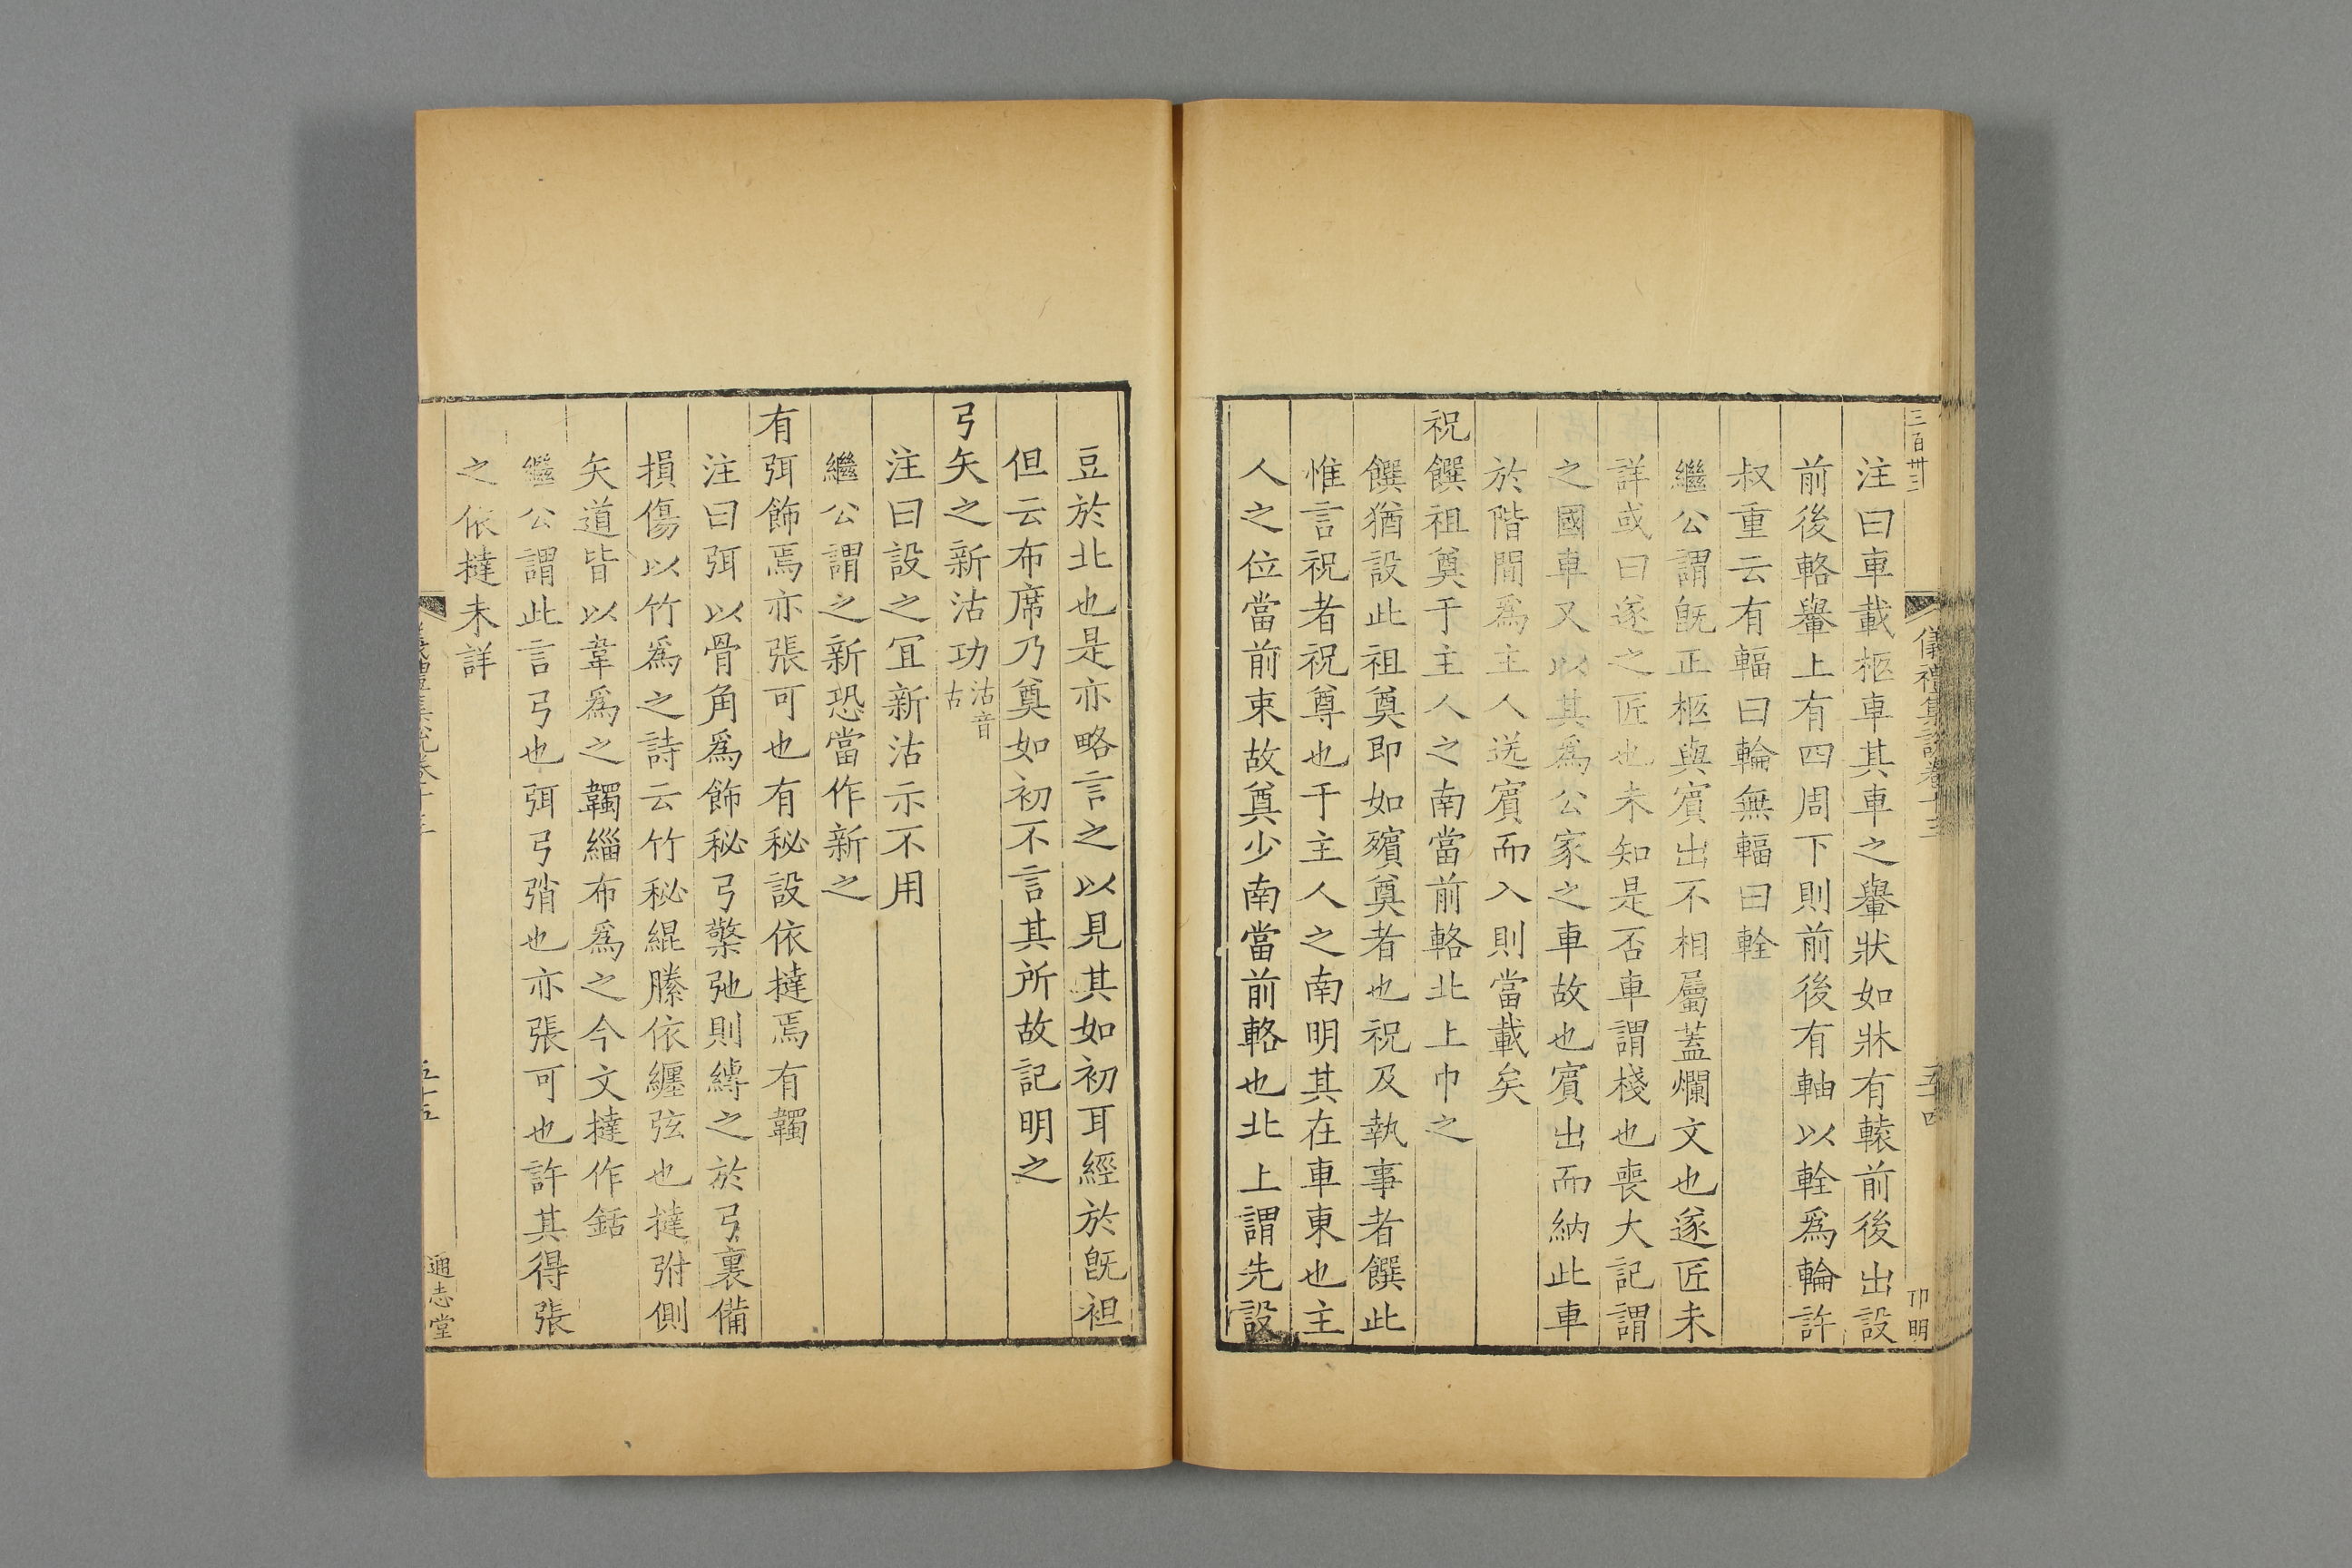 三百卅三
儀禮集說卷十三
五十四
卬明
注曰車載柩車其車之轝狀如牀有轅前後出設
前後輅轝上有四周下則前後有軸以輇爲輪許
叔重云有輻曰輪無輻曰輇
繼公謂旣正柩與賓出不相屬蓋爛文也遂匠未
詳或曰遂之匠也未知是否車謂棧也喪大記謂
之國車又以其爲公家之車故也賓出而納此車
於階間爲主人送賓而入則當載矣
祝饌祖奠于主人之南當前輅北上巾之
饌猶設此祖奠即如殯奠者也祝及執事者饌此
惟言祝者祝尊也于主人之南明其在車東也主
人之位當前束故奠少南當前輅也北上謂先設
豆於北也是亦略言之以見其如初耳經於旣袒
但云布席乃奠如初不言其所故記明之
弓矢之新沽功沽音古
注曰設之冝新沽示不用
繼公謂之新恐當作新之
有弭飾焉亦張可也有柲設依撻焉有韣
注曰弭以骨角爲飾秘弓檠弛則縛之於弓裏備
損傷以竹爲之詩云竹秘緄縢依纏弦也撻弣側
矢道皆以韋爲之韣緇布爲之今文撻作銛
繼公謂此言弓也弭弓弰也亦張可也許其得張
之依撻未詳
儀禮集說卷十三
五十五
通志堂